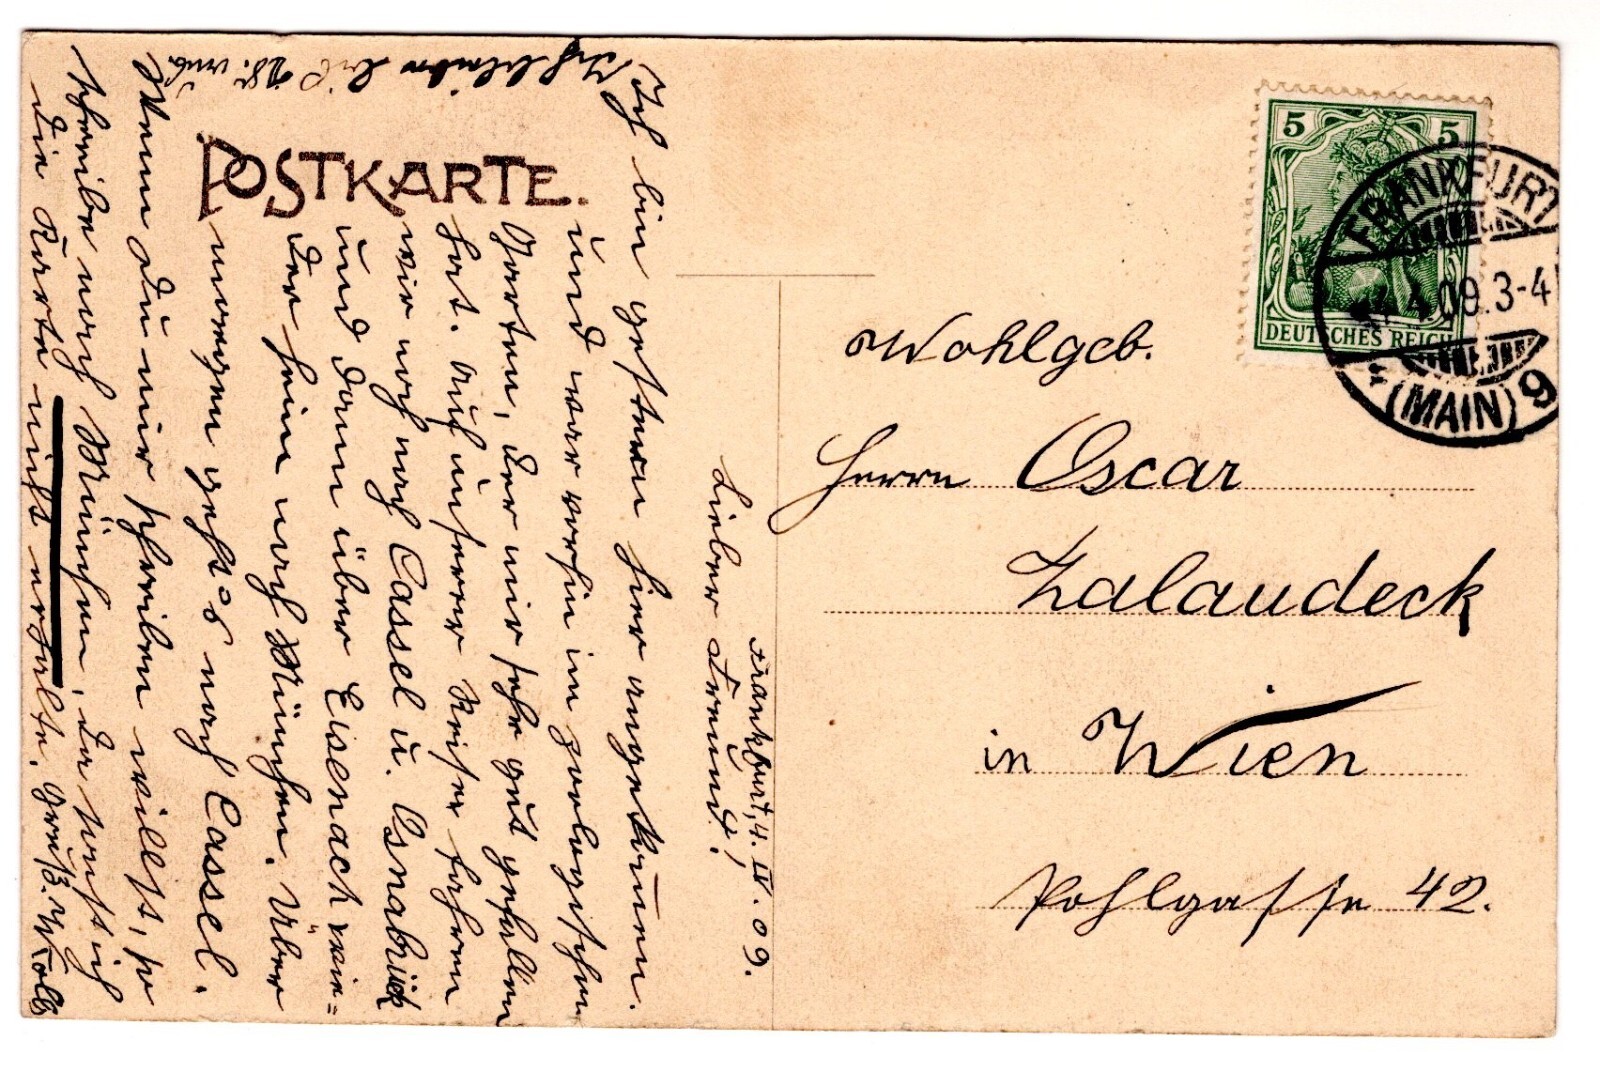 POSTKARTE.
5 5
DEUTSCHES REICH
FRANKFURT
4.09.3-4
* (MAIN) 9
Wohlgeb.
Herrn Oscar
Zalaudeck
in Wien
Pohlgasse 42.
Frankfurt, 4. IV. 09.
Lieber Freund!
Ich bin gestern hier angekommen.
und war vorhin im zoologischen
Garten, der mir sehr gut gefallen
hat. Auf unserer Reise fahren
wir noch nach Cassel u. Osnabrück
und dann über Eisenach wie=
der heim nach München. Über
morgen geht's nach Cassel.
Wenn Du mir schreiben willst, so
schreibe nach München, da sonst ich
die Karte nicht erhalte. Gruß